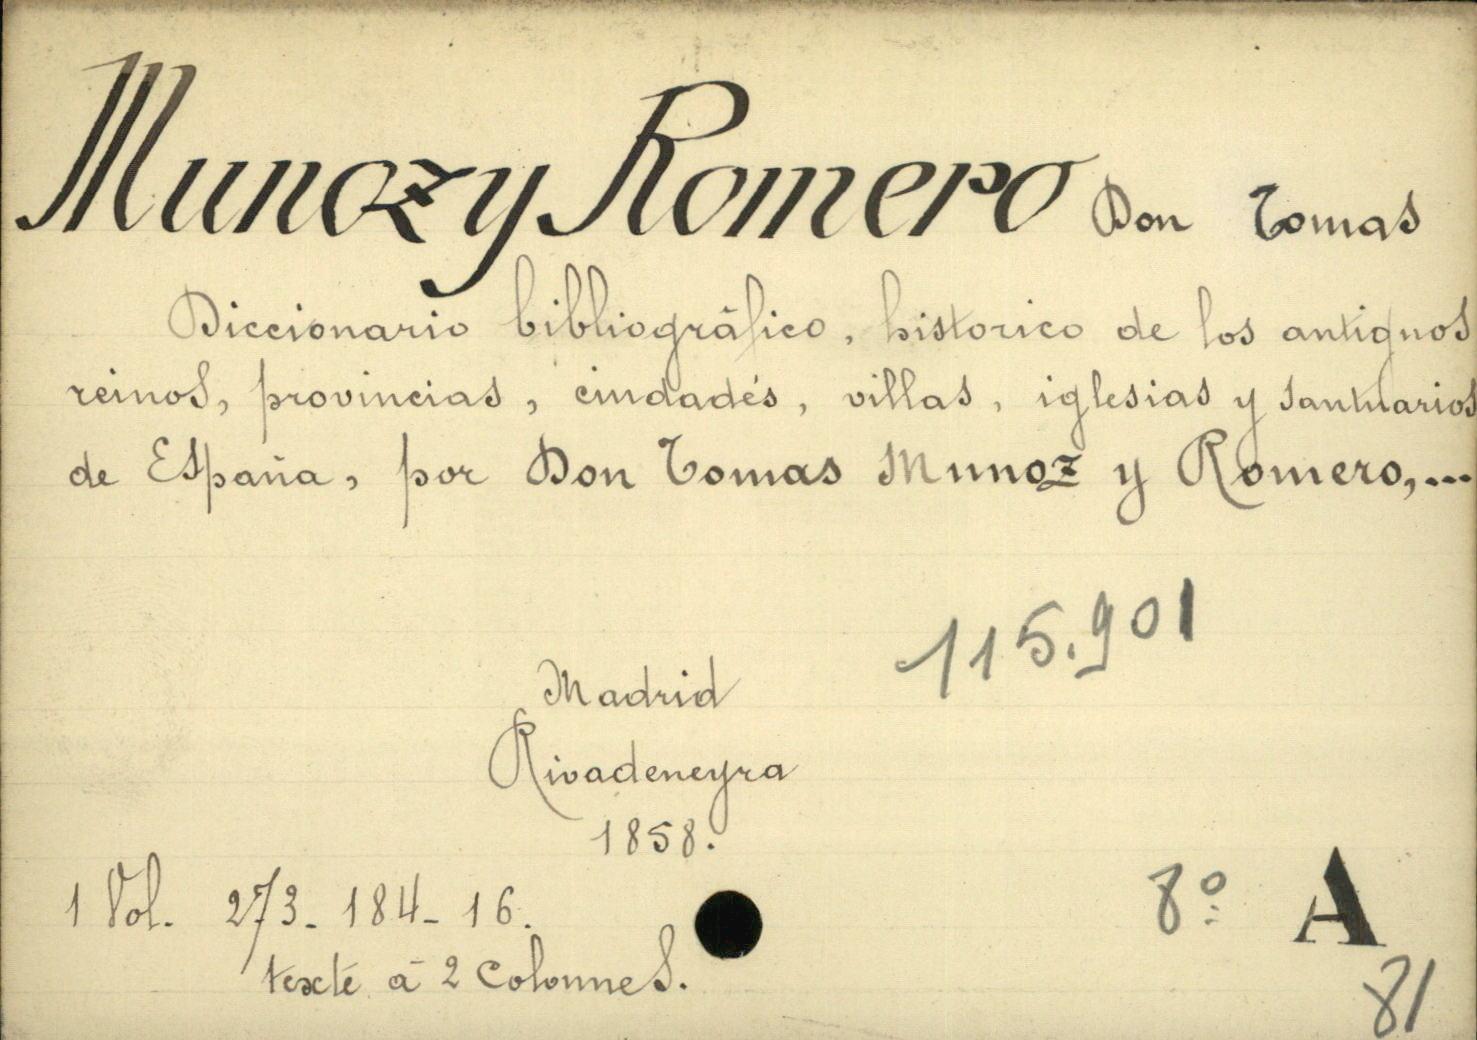 Munoz y Romero Don Tomas
Diccionario bibliogràfico, historico de los antiguos
reinos, provincias, ciudadés, villas, iglesias y santuarios
de España, por Don Tomas Munoz y Romero,...
115.901
Madrid
Rivadeneyra
1858.
1 Vol. 273 - 184 - 16.
texte à 2 Colonnes.
8º A
81